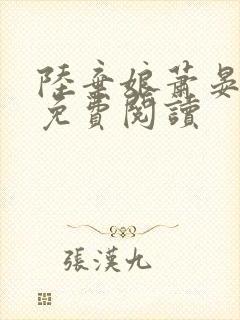 陸棄娘蕭晏
免費閱讀
張漢九